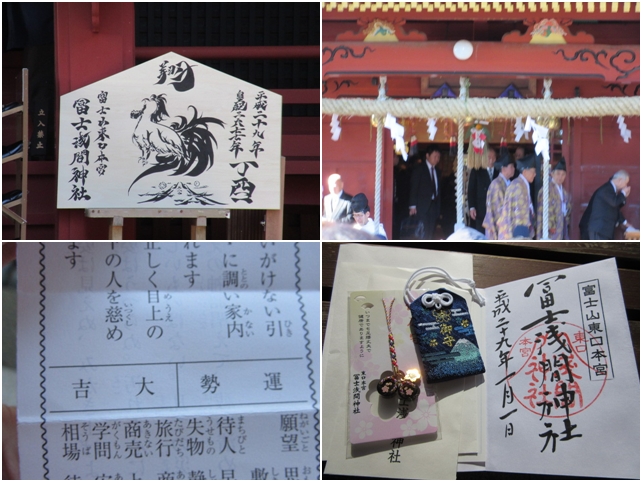 翔
平成二十九年
皇紀二六七七年
丁酉
富士山東口本宮
冨士浅間神社
立入禁止
いがけない引
に調い家内
れます
正しく目上の
下の人を慈め
運勢
大吉
願望
待人
失物
旅行
商売
学問
相場
東口本宮
冨士浅間神社
御守
神社
富士山東口本宮
冨士浅間神社
平成二十九年一月一日